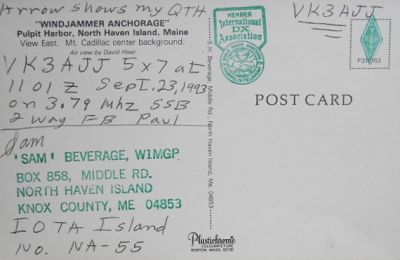 Arrow shows my QTH
"WINDJAMMER ANCHORAGE"
Pulpit Harbor, North Haven Island, Maine
View East. Mt. Cadillac center background.
Air view by David Hiser
VK3AJJ 5x7 at
1101Z Sept. 23, 1993
on 3.79 Mhz SSB
2 way FB Paul
Sam
"SAM" BEVERAGE, W1MGP
BOX 858, MIDDLE RD.
NORTH HAVEN ISLAND
KNOX COUNTY, ME 04853
IOTA Island
No. NA-55
MEMBER
International
DX
Association
S. Beverage, Middle Rd., North Haven Island, ME 04853
Plastichrome
COLOURPICTURE
BOSTON, MASS. 02130
VK3AJJ
POST CARD